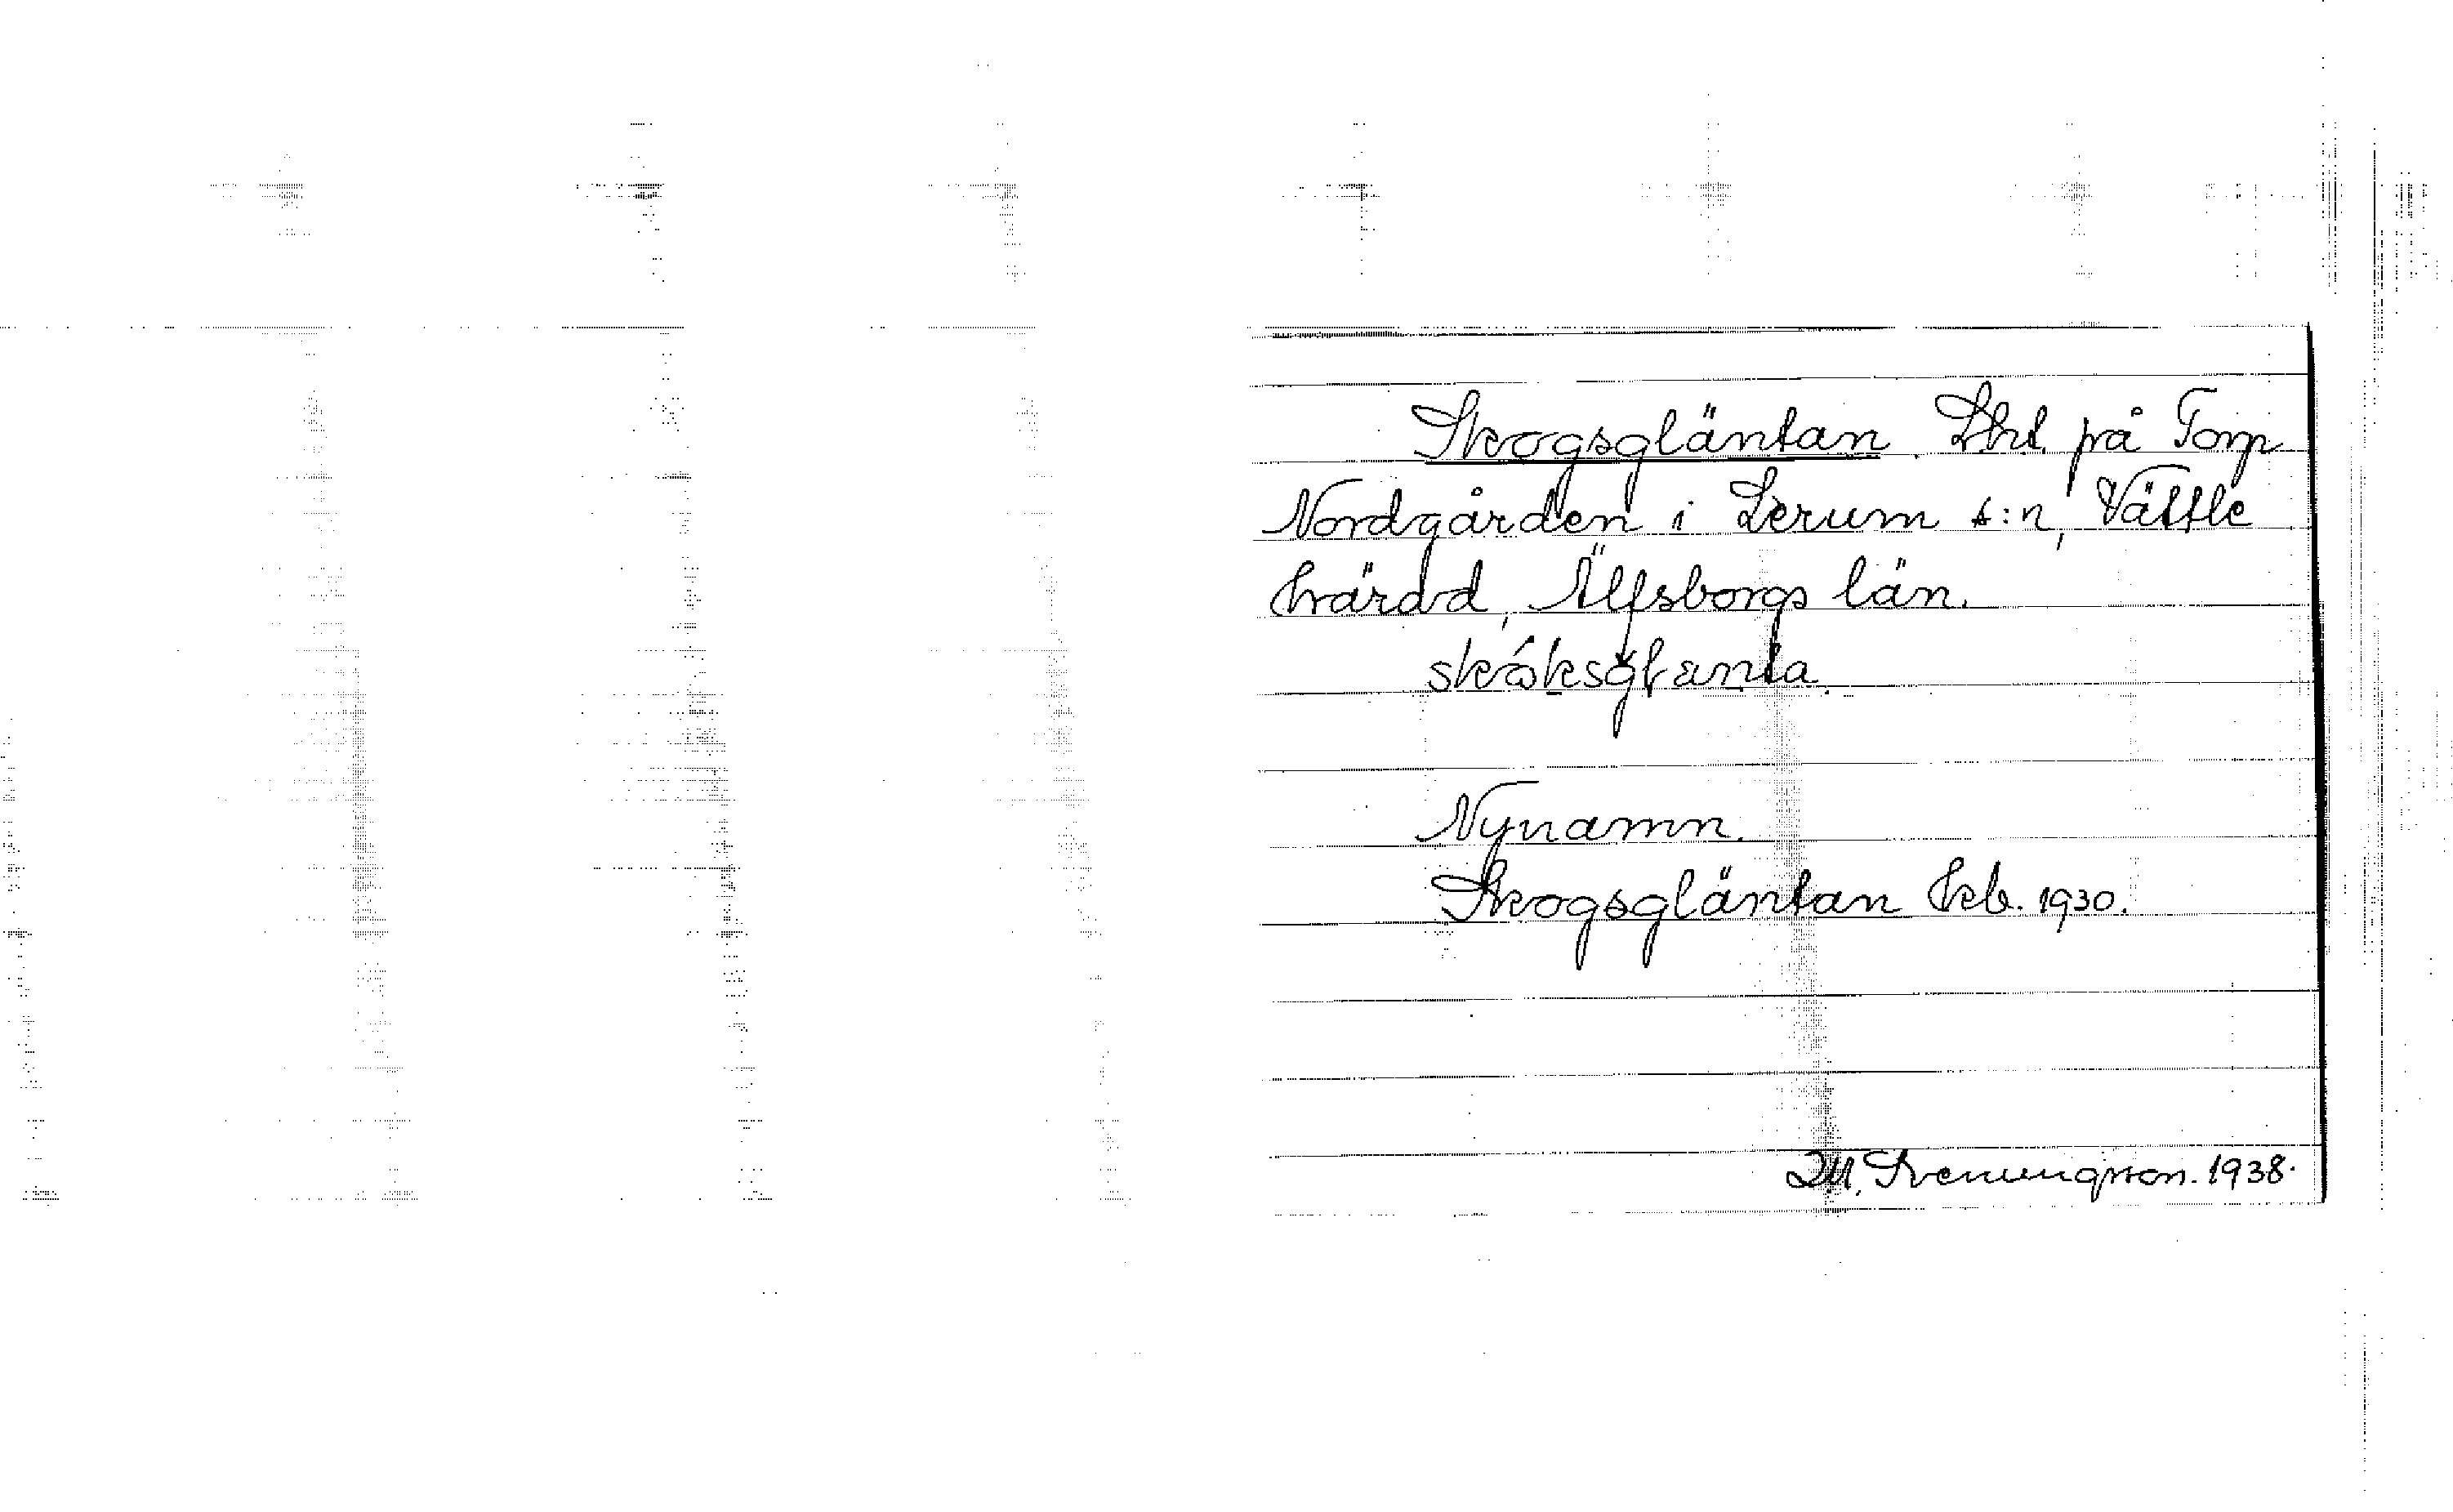 Skogsgläntan. Lht. på Torp
Nordgården i Lerum s:n, Vättle
härad, Älfsborgs län.
Nynamn.
Skogsgläntan Kb. 1930.
Svenungsson. 1938.